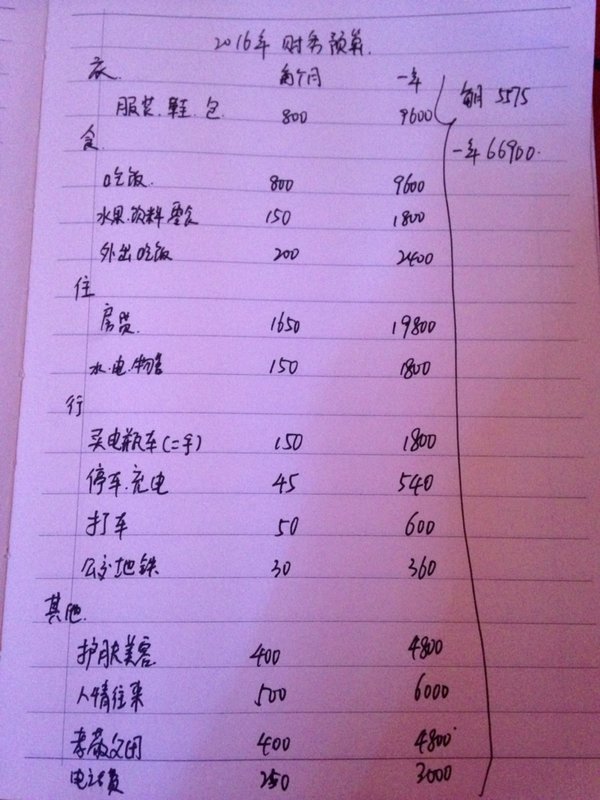 2016年 财务预算.
衣. 每个月 一年
服装.鞋.包. 800 9600
每月 5575
一年 66900.
食.
吃饭. 800 9600
水果.饮料 零食 150 1800
外出吃饭 200 2400
住
房贷. 1650 19800
水.电.物管 150 1800
行
买电瓶车(二手) 150 1800
停车.充电 45 540
打车 50 600
公交.地铁 30 360
其他.
护肤美容 400 4800
人情往来 500 6000
孝敬父母 400 4800
电话费 250 3000